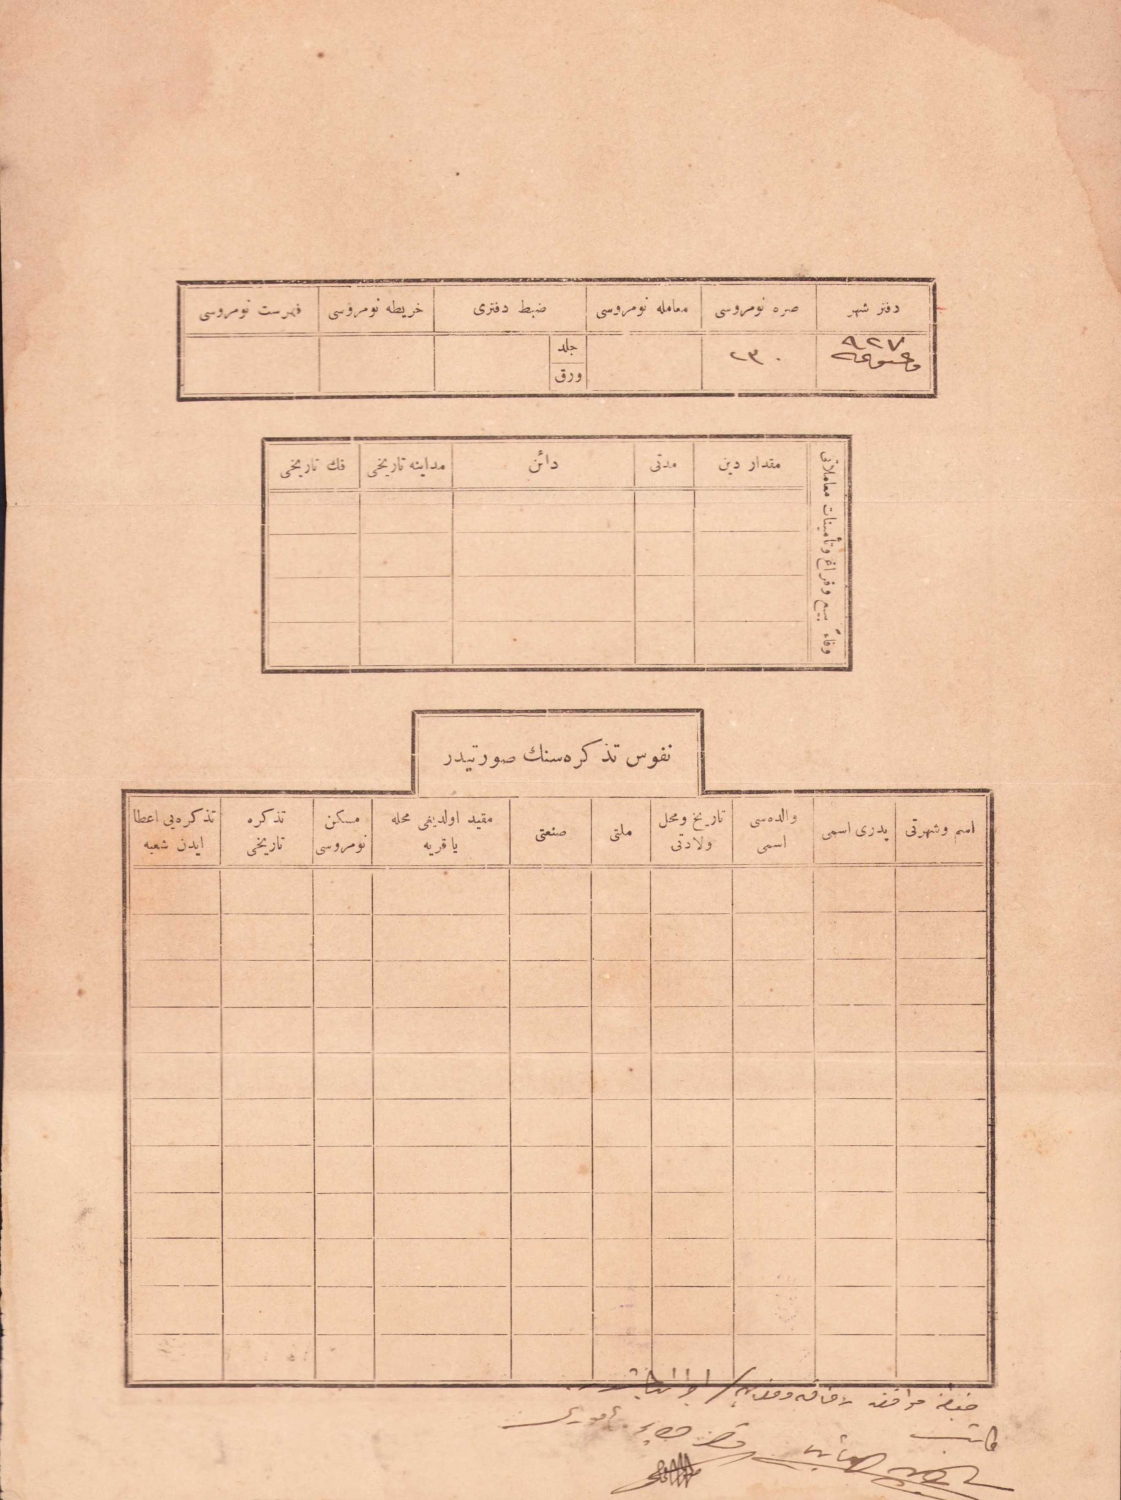 دفتر شهر
صره نومروسی
معامله نومروسی
ضبط دفتری
خریطه نومروسی
فهرست نومروسی
٩٢٧
٢٣٠
جلد
ورق
وفاءً بیع وفراغ وتأمینات معاملاتی
مقدار دین
مدتی
دائن
مداینه تاریخی
فك تاریخی
نفوس تذكره‌سنك صورتیدر
اسم وشهرتی
پدری اسمی
والده‌سی
اسمی
تاریخ ومحل
ولادتی
ملتی
صنعتی
مقید اولدیغی محله
یا قریه
مسكن
نومروسی
تذكره
تاریخی
تذكره‌یی اعطا
ایدن شعبه
كاتب